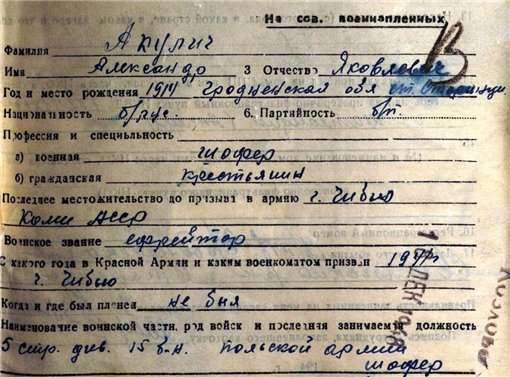 На сов. военнопленных
В
Фамилия Акулич
Имя Александр 3 Отчество Яковлевич
Год и место рождения 1914 Гродненская обл
Национальность б/рус. 6. Партийность б/п.
Профессия и специльность
а) военная шофер
б) гражданская крестьянин
Последнее местожительство до призыва в армию г. Чибью
Коми АССР
Воинское звание ефрейтор
С какого года в Красной Армии и каким военкоматом призван
г. Чибью
Когда и где был пленен не был
Наименование воинской части, род войск и последняя занимаемая должность
5 стр. див. 15 б-н. Польской армии
шофер
Козлова